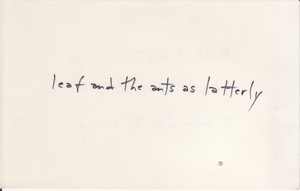 leaf and the ants as latterly